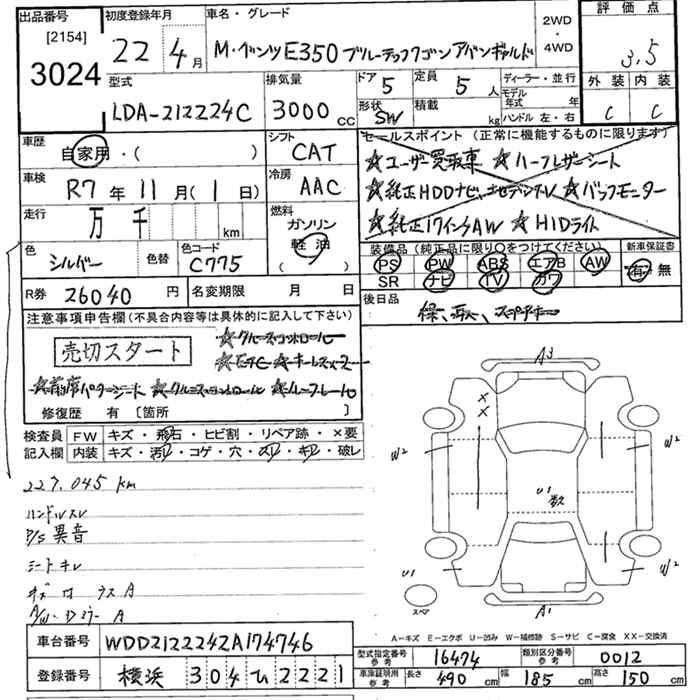 出品番号 初度登録年月 車名・グレード 2WD・4WD 評価点
[2154] 3024
22年 4月 M・ベンツ E350 ブルーテックワゴン アバンギャルド
3.5
型式 排気量 ドア 5 定員 5人 ディーラー・並行 外装 内装
LDA-212224C 3000cc 形状 SW 積載 kg モデル年式 年 ハンドル 左・右 C C
車歴 自家用・( ) シフト CAT
セールスポイント(正常に機能するものに限ります)
★ユーザー買取車 ★ハーフレザーシート
車検 R7年 11月(1日) 冷房 AAC
★純正HDDナビ、地デジTV ★バックモニター
走行 万 千 km 燃料 ガソリン 軽油 ( )
★純正17インチAW ★HIDライト
色 シルバー 色替 色コード C775
装備品(純正品に限り○をつけてください) 新車保証書
PS PW ABS エアB AW 有・無
SR ナビ TV カワ
R券 26040円 名変期限 月 日
後日品 保、取、スペアキー
注意事項申告欄(不具合内容等は具体的に記入して下さい)
売切スタート
★クルーズコントロール
★ETC ★キーレス×2
★前席パワーシート ★クルーズコントロール ★ルーフレール
修復歴 有 [箇所 ]
検査員記入欄 FW キズ・飛石・ヒビ割・リペア跡・×要
内装 キズ・汚レ・コゲ・穴・スレ・キレ・破レ
227,045 km
ハンドルスレ
P/S 異音
シートキレ
A
A
A3
X
X
W2
W2
U1 数ヶ
W2
W2
U1
スペア
A1
A-キズ E-エクボ U-凹み W-補修跡 S-サビ C-腐食 XX-交換済
車台番号 WDD2122242A174746
型式指定番号 参考 16474 類別区分番号 参考 0012
登録番号 横浜 304 ひ 2221
車庫証明用 参考 長さ 490cm 幅 185cm 高さ 150cm